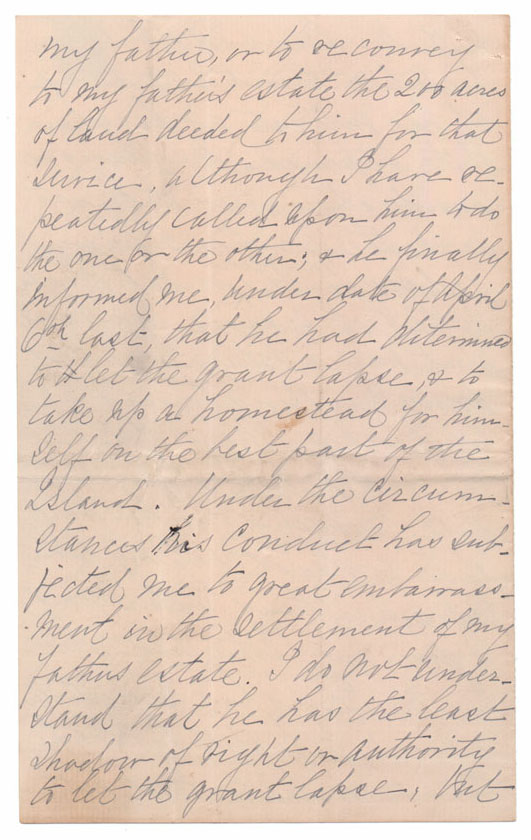 my father, or to reconvey
to my father's estate the 200 acres
of land deeded to him for that
service, although I have re-
peatedly called upon him to do
the one or the other; & he finally
informed me, under date of April
6th last, that he had determined
to let the grant lapse & to
take up a homestead for him-
self on the best part of the
Island. Under the circum-
stances his conduct has sub-
jected me to great embarrass-
ment in the settlement of my
fathers estate. I do not under-
stand that he has the least
shadow of right or authority
to let the grant lapse, but